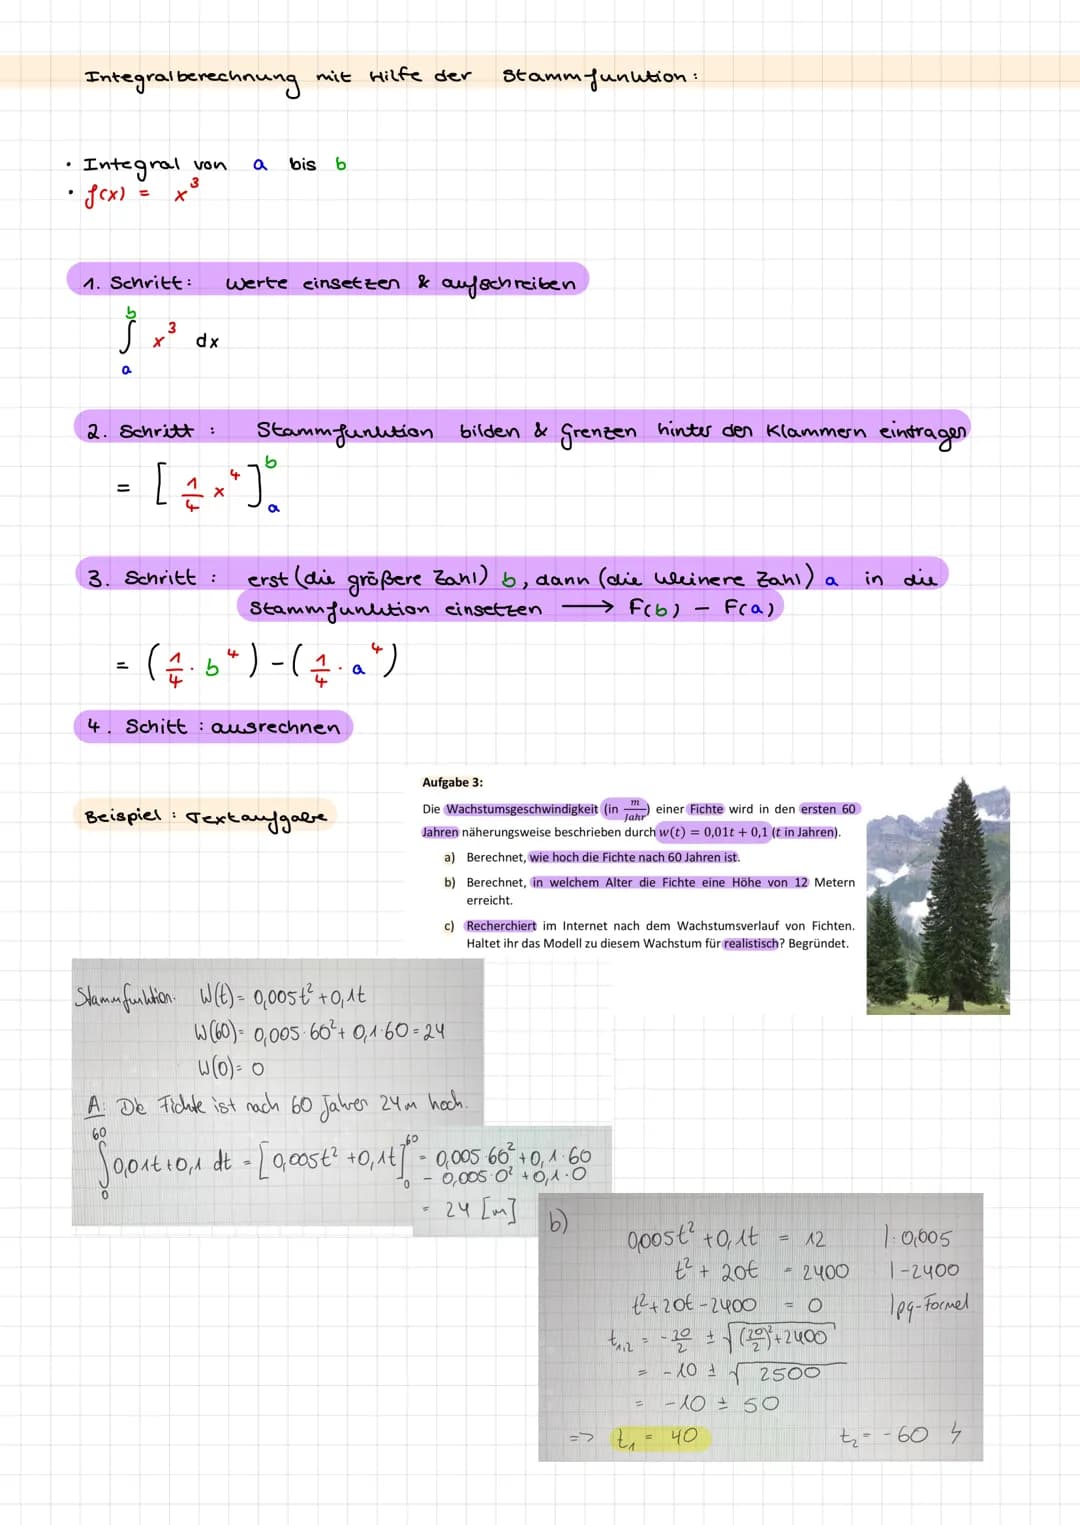 Integralberechnung mit Hilfe der Stammfunktion:
• Integral von a bis b
• f(x) = x³
1. Schritt: Werte einsetzen & aufschreiben
b
∫ x³ dx
a
2. Schritt : Stammfunktion bilden & Grenzen hinter den Klammern eintragen
= [ 1/4 x⁴ ] b a
3. Schritt : erst (die größere Zahl) b, dann (die kleinere Zahl) a in die
Stammfunktion einsetzen ⟶ F(b) - F(a)
= (1/4 · b⁴) - (1/4 · a⁴)
4. Schitt : ausrechnen
Beispiel : Textaufgabe
Aufgabe 3:
Die Wachstumsgeschwindigkeit (in m/Jahr) einer Fichte wird in den ersten 60
Jahren näherungsweise beschrieben durch w(t) = 0,01t + 0,1 (t in Jahren).
a) Berechnet, wie hoch die Fichte nach 60 Jahren ist.
b) Berechnet, in welchem Alter die Fichte eine Höhe von 12 Metern
erreicht.
c) Recherchiert im Internet nach dem Wachstumsverlauf von Fichten.
Haltet ihr das Modell zu diesem Wachstum für realistisch? Begründet.
Stammfunktion: W(t) = 0,005t² + 0,1t
W(60) = 0,005·60² + 0,1·60 = 24
W(0) = 0
A: Die Fichte ist nach 60 Jahren 24m hoch.
60
∫ 0,01t+0,1 dt = [0,005t² +0,1t] 60 0 = 0,005·60² +0,1·60
0
- 0,005·0² +0,1·0
= 24 [m]
b)
0,005t² +0,1t = 12 |:0,005
t² + 20t = 2400 |-2400
t²+20t-2400 = 0 |pq-Formel
t1,2 = -20/2 ± √(20/2)²+2400
= -10 ± √2500
= -10 ± 50
=> t₁ = 40 t₂ = -60 ↯